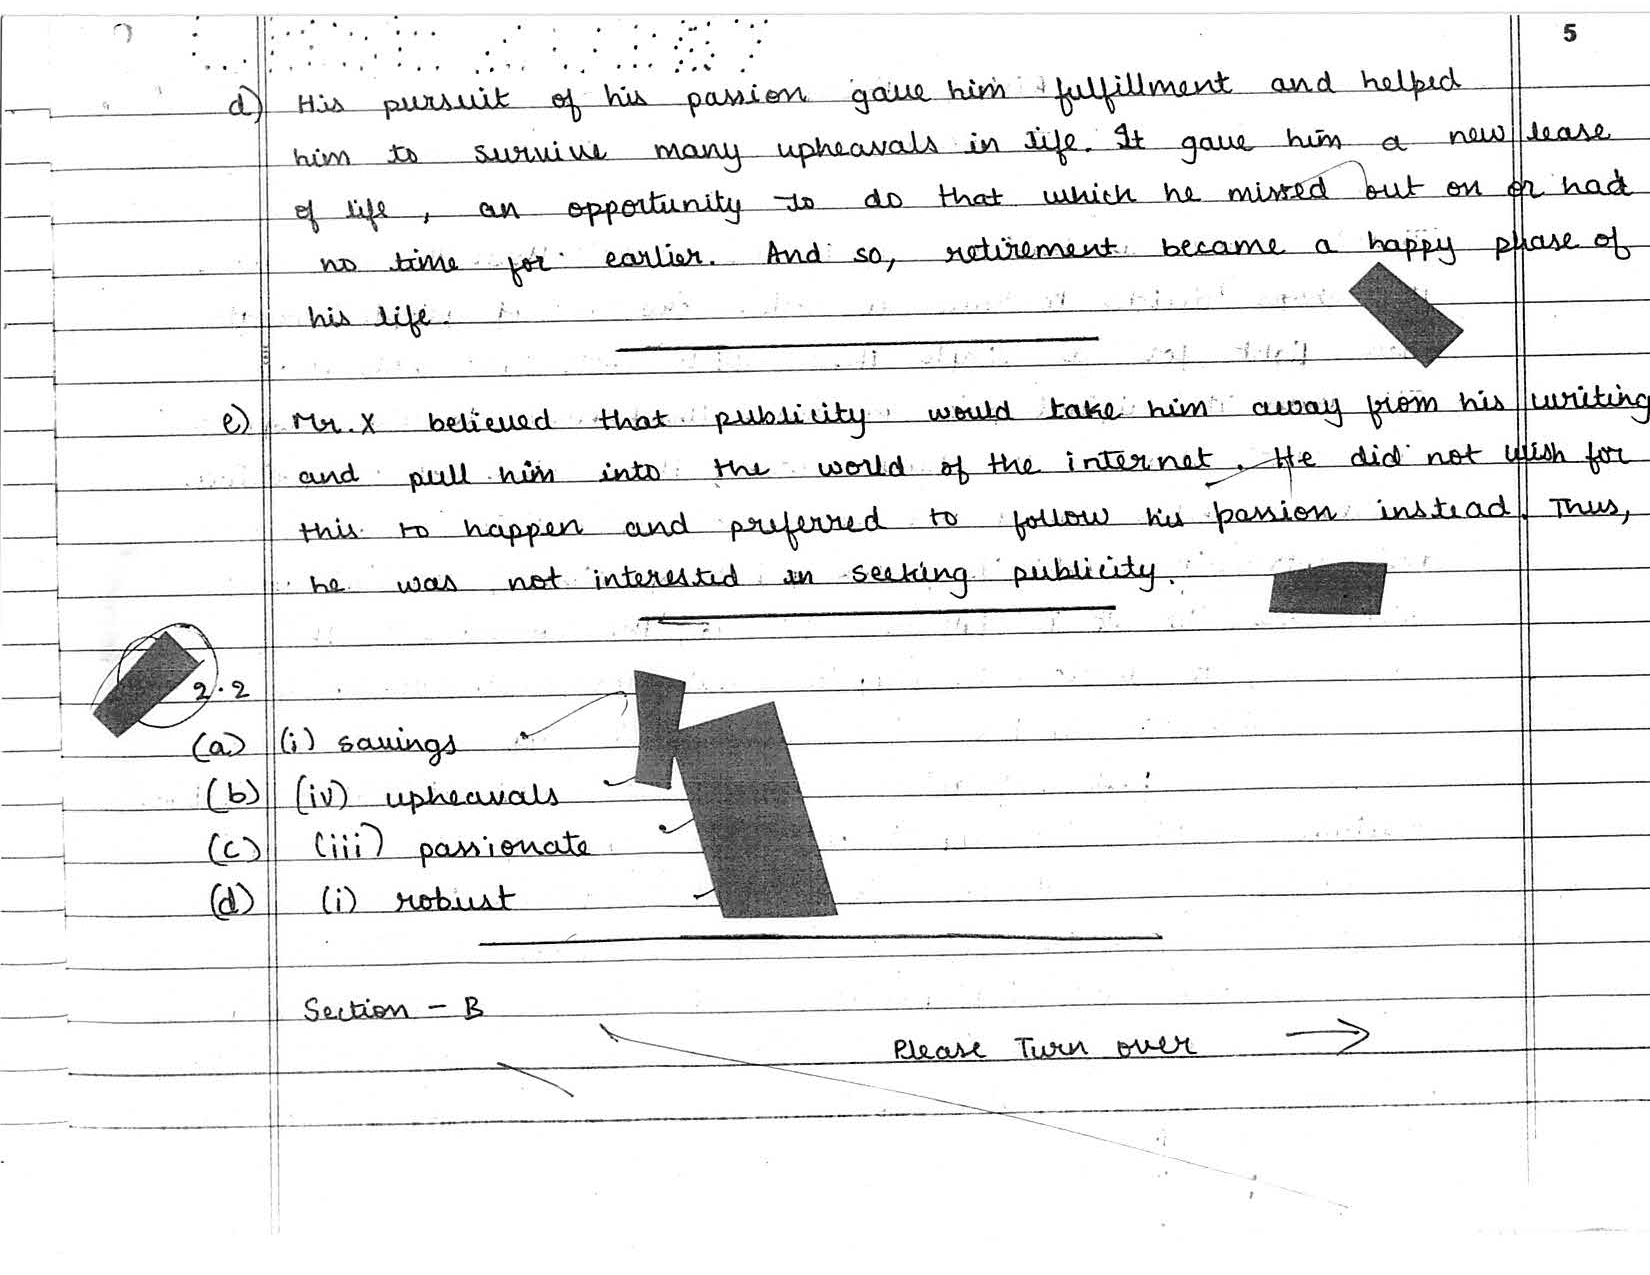 5
d) His pursuit of his passion gave him fulfillment and helped
him to survive many upheavals in life. It gave him a new lease
of life, an opportunity to do that which he missed out on or had
no time for earlier. And so, retirement became a happy phase of
his life.
e) Mr. X believed that publicity would take him away from his writing
and pull him into the world of the internet. He did not wish for
this to happen and preferred to follow his passion instead. Thus,
he was not interested in seeking publicity.
2.2
(a) (i) savings
(b) (iv) upheavals
(c) (iii) passionate
(d) (i) robust
Section - B
Please Turn over →